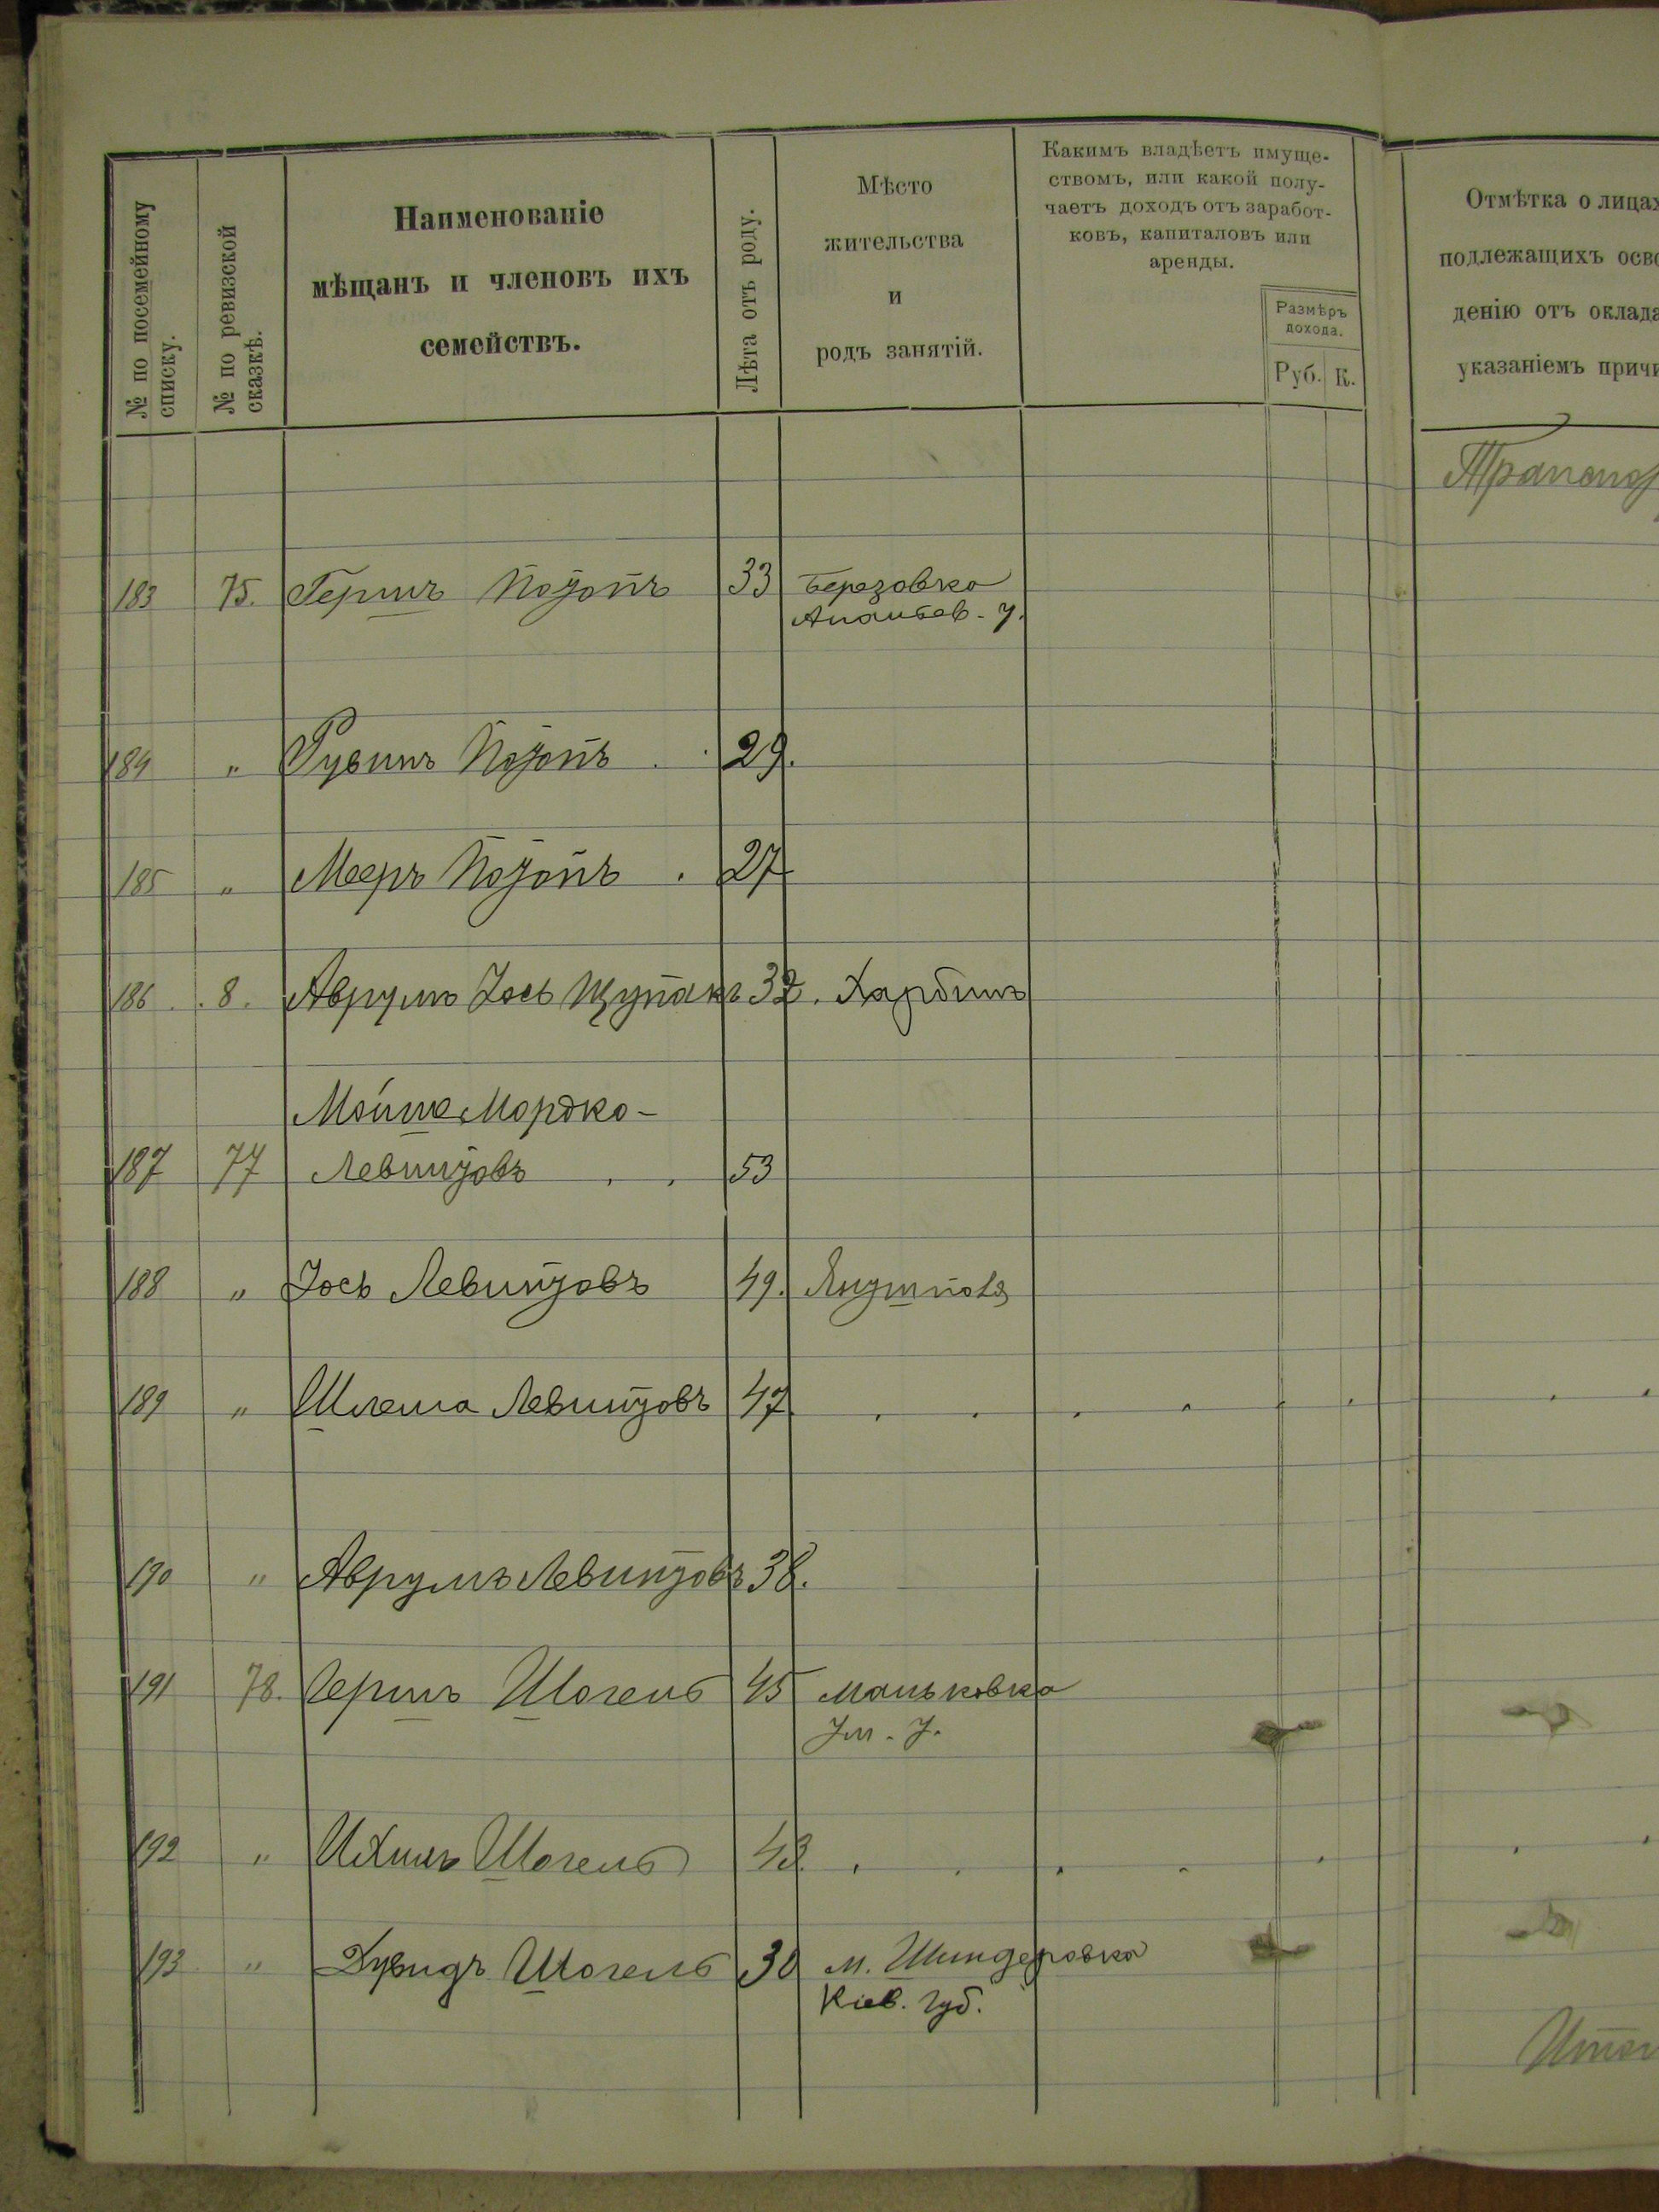 № по посемейному списку.
№ по ревизской сказкѣ.
Наименованіе
мѣщанъ и членовъ ихъ
семействъ.
Лѣта отъ роду.
Мѣсто
жительства
и
родъ занятій.
Какимъ владѣетъ имуще-
ствомъ, или какой полу-
чаетъ доходъ отъ заработ-
ковъ, капиталовъ или
аренды.
Размѣръ
дохода.
Руб. К.
Отмѣтка о лицах
подлежащихъ осво
денію отъ оклада
указаніемъ причи
183 75. Гершъ 33 Березовка
Ананьев. у.
184 " Рувинъ 29.
185 " Мееръ 27
186 8. Аврумъ Іось Щупакъ 32. Харбинъ
Мойше Мордко-
187 77 Левинзовъ 53
188 " Іось Левинзовъ 49.
189 " Шлема Левинзовъ 47
190 " Аврумъ Левинзовъ 38.
191 78. Гершъ Шогель 45 Маньковка
Ум. у.
192 " Ихилъ Шогель 43.
193 " Дувидъ Шогель 30 м. Шендеровка
Кіев. губ.
Итог